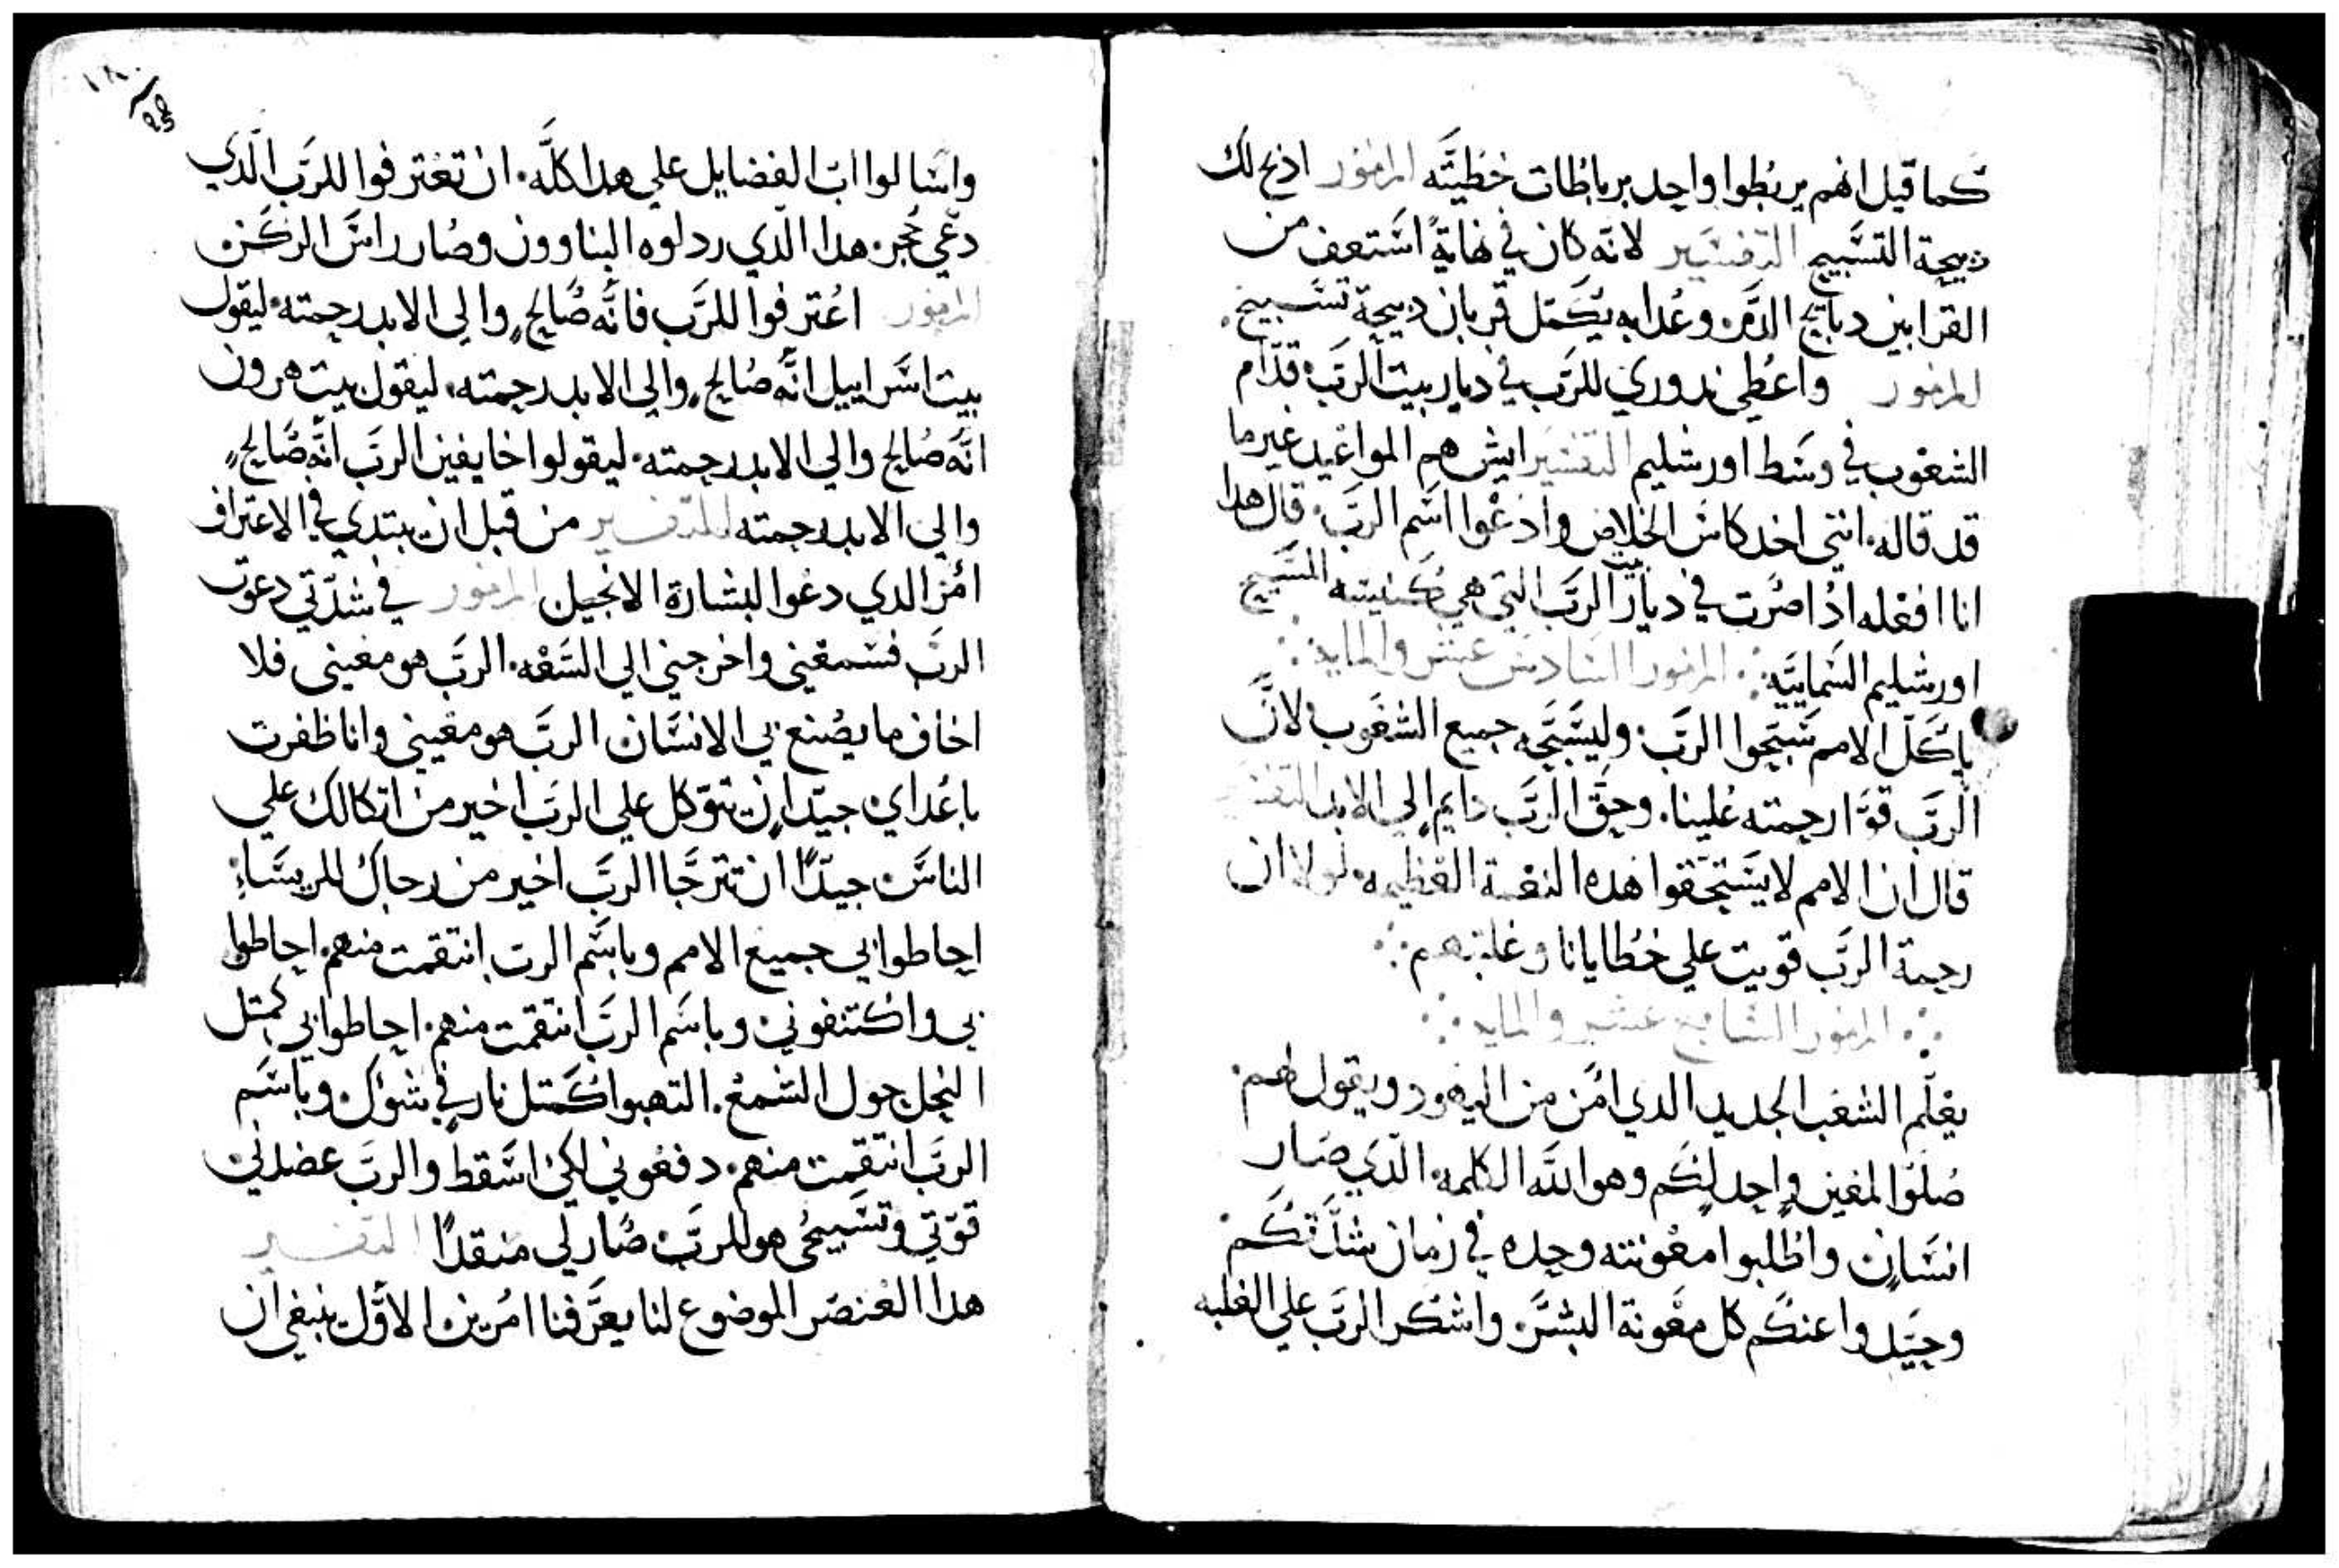 كما قيل انهم يربطوا واحد برباطات خطيته المزمور اذبح لك
دبيحة التسبيح التفسير لانه كان في نهاية استعف من
القرابين دبايح الدم وعدا به يكمل قربان دبيحة تسبيح
المزمور واعطي ندوري للرب في ديار بيت الرب قدام
الشعوب في وسط اورشليم التفسير ايش هم المواعيد غير ما
قد قاله انني اخد كاس الخلاص وادعوا اسم الرب قال هدا
انا افعله ادا صرت في ديار بيت الرب التي هي كنيسته المسيح
اورشليم السماييه المزمور السادس عشر والمايه
يا كل الامم سبحوا الرب وليسبحه جميع الشعوب لان
الرب قوا رحمته علينا وحق الرب دايم الي الابد التفسير
قال ان الامم لا يستحقوا هده النعمة العظيمه لولا ان
رحمة الرب قويت علي خطايانا وغلبتهم
المزمور السابع عشر والمايه
يعلم الشعب الجديد الدي امن من اليهود ويقول لهم
صلوا المعين واحد لكم وهو الله الكلمه الدي صار
انسان واطلبوا معونته وحده في زمان شدتكم
وحيدوا عنكم كل معونة البشر واشكر الرب علي الغلبه
١٨٠
وان سالوا اب الفضايل علي هدا كله ان تعترفوا للرب الدي
دعي حجر هدا الدي ردلوه البناوون وصار راس الركن
المزمور اعترفوا للرب فانه صالح والي الابد رحمته ليقول
بيت اسراييل انه صالح والي الابد رحمته ليقول بيت هرون
انه صالح والي الابد رحمته ليقولوا خايفين الرب انه صالح
والي الابد رحمته التفسير من قبل ان يبتدي في الاعتراف
امر الدي دعوا لبشارة الانجيل المزمور في شدتي دعوت
الرب فسمعني واخرجني الي السعه الرب هو معيني فلا
اخاف ما يصنع بي الانسان الرب هو معيني وانا ظفرت
باعداي جيدا ان تتوكل علي الرب اخير من اتكالك علي
الناس جيدا ان تترجا الرب اخير من رجاك للريساء
احاطوا بي جميع الامم وباسم الرب انتقمت منهم احاطوا
بي واكتنفوني وباسم الرب انتقمت منهم احاطوا بي كمتل
النحل حول الشمع التهبوا كمتل نار في شوك وباسم
الرب انتقمت منهم دفعوني لكي اسقط والرب عضدني
قوتي وتسبيحي هو للرب صار لي منقدا التفسير
هدا العنصر الموضوع لنا يعرفنا امرين الاول ينبغي ان